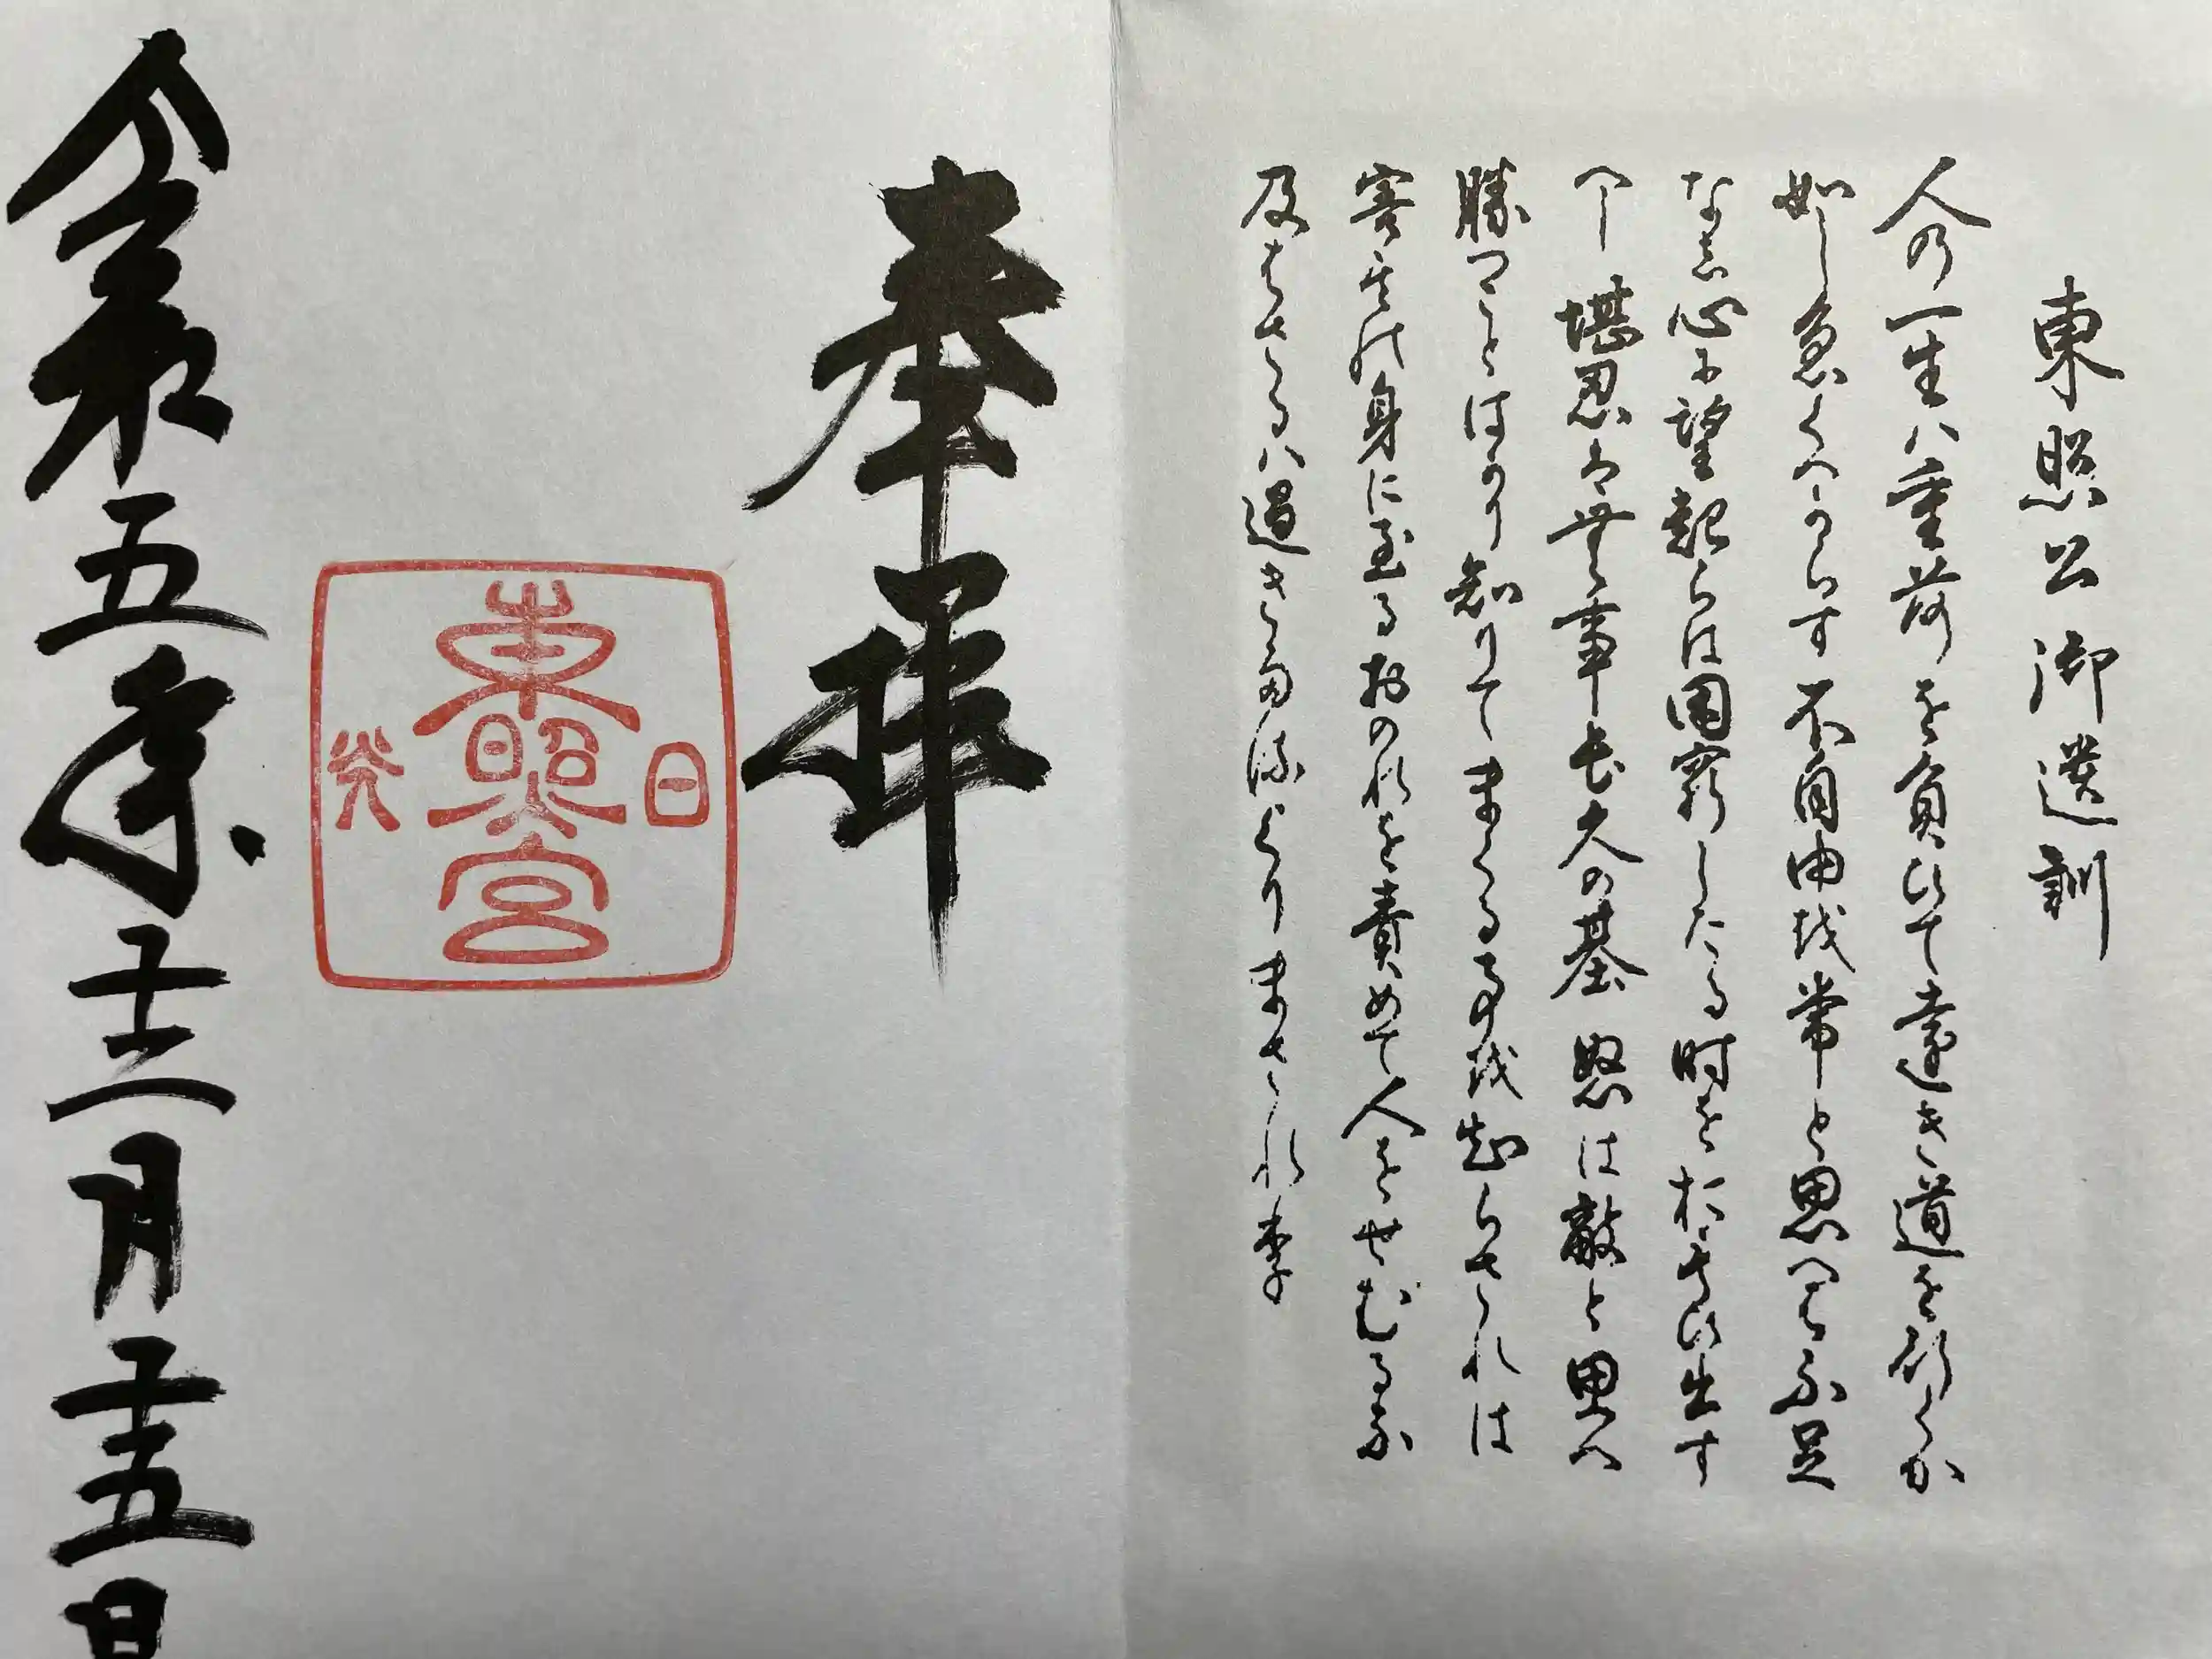 東照公御遺訓
人の一生ハ重荷を負ひて遠き道を行くか
如し急くへからす不自由を常と思へは不足
なし心に望起らは困窮したる時を於もひ出す
へし堪忍は無事長久の基怒は敵と思へ
勝つことはかり知りてまくる事を知らされは
害其の身に至るおのれを責めて人をせむるな
及はさるハ過きたるよりまされり
奉拝
日光
東照宮
令和五年十二月十五日